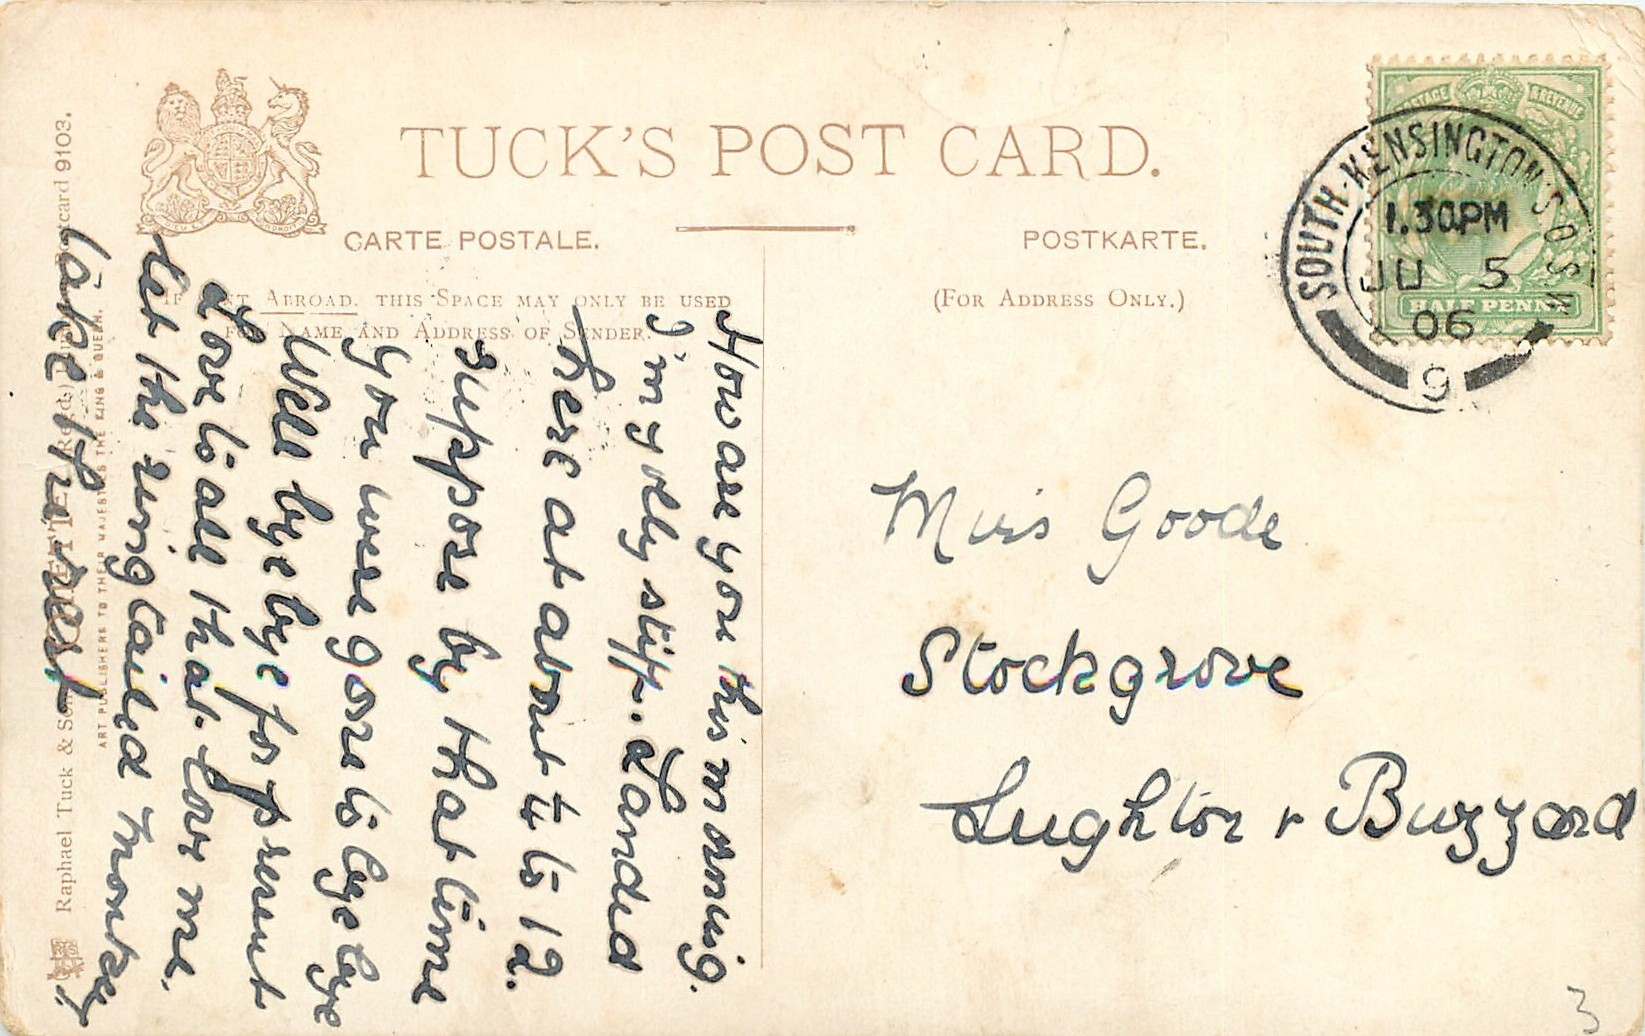 TUCK'S POST CARD.
CARTE POSTALE.
POSTKARTE.
(For Address Only.)
Abroad, this Space may only be used
Name and Address of Sender.
POSTAGE & REVENUE
HALF PENNY
SOUTH-KENSINGTON S.O. S.W.
1.30PM
JU 5
06
9
Miss Goode
Stockgrove
Leighton Buzzard
3
How are you this morning.
I'm yolly stiff. Landed
here at about ¼ to 12.
suppose by that time
you were gone to bye bye
Well bye bye for present
Love to all that love me
Let the ring tailed monkey
take the rest
Raphael Tuck & Sons
card 9103.
ART PUBLISHERS TO THEIR MAJESTIES THE KING & QUEEN.